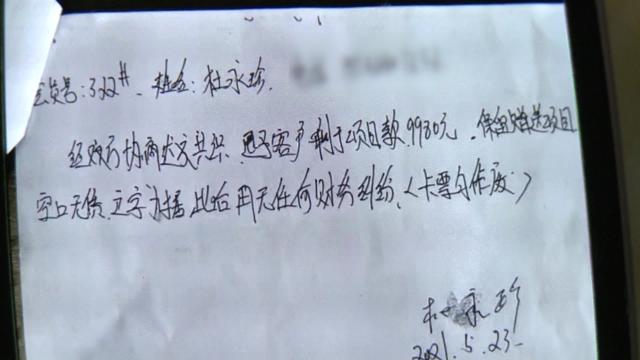 会员号:322#、姓名:杜永珍.
经双方协商达成共识,退还客户剩余项目款9980元,保留赠送项目
空口无凭,立字为据,此后再无任何财务纠纷,(卡票勻作废)
杜永珍
2021.5.23